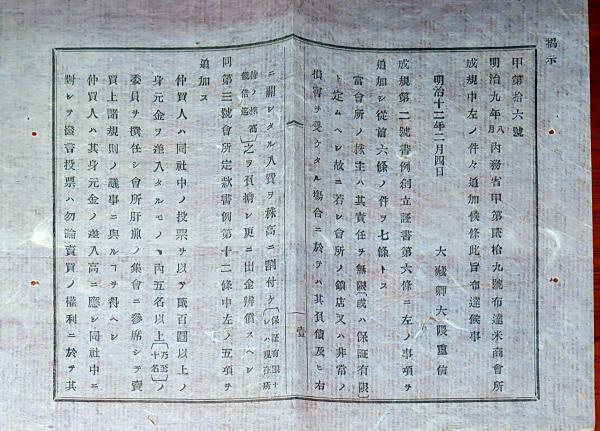 揭示
甲第拾六號
明治九年八月內務省甲第貳拾九號布達米商會所
成規中左ノ件々追加候條此旨布達候事
明治十二年二月四日
大藏卿大隈重信
成規第二號書例創立証書第六條ニ左ノ事項ヲ
追加シ從前六條ノ件ヲ七條トス
當會所ノ株主ハ其責任ヲ無限(或ハ保証有限)
ト定ムヘシ故ニ若シ會所ノ鎖店又ハ非常ノ
損害ヲ受ケタル塲合ニ於テハ其負債及ヒ右
壹
ニ關シタル入費ヲ株高ニ割付ケ(保証有限ナレハ現在所
持ノ株高幾倍迄)之ヲ負擔シ更ニ出金辨償スヘシ
同第三號會所定款書例第十二條中左ノ五項ヲ
追加ス
仲買人ハ同社中ノ投票ヲ以テ貳百圓以上ノ
身元金ヲ差入タルモノヽ內五名以上(乃至十名)ノ
委員ヲ撰任シ會所肝煎ノ集會ニ參席シテ賣
買上諸規則ノ議事ニ與ルヿヲ得ヘシ
仲買人ハ其身元金ノ差入高ニ應シ同社中ニ
對シテ發言投票ハ勿論賣買ノ權利ニ於テ其